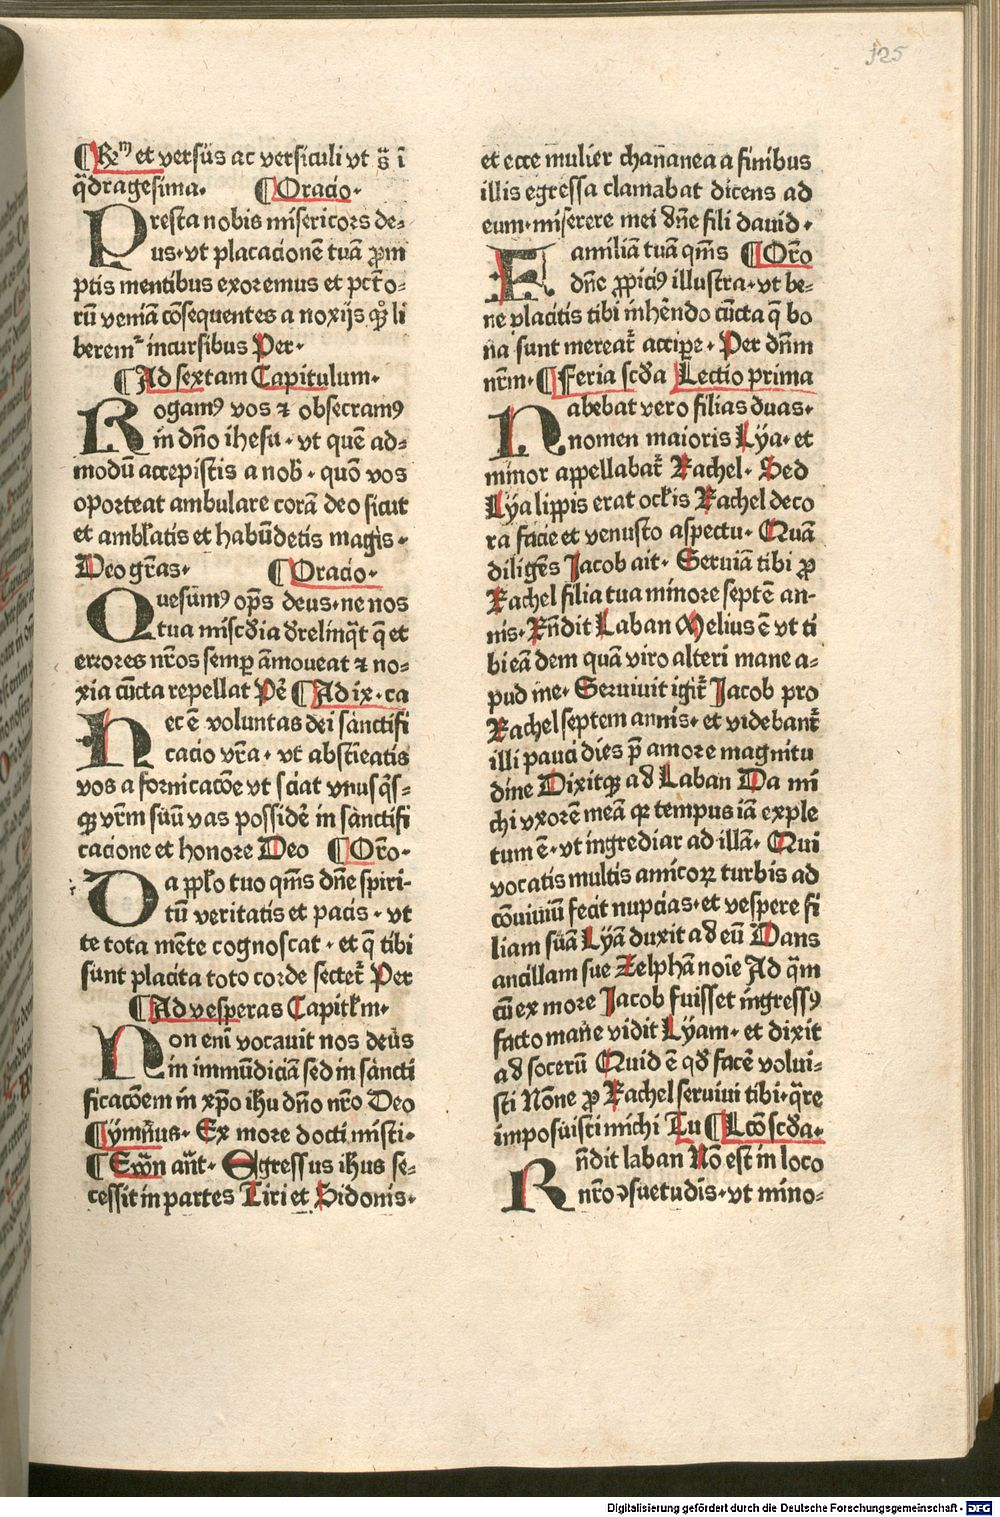 125
¶ Rm et versus ac versiculi vt s̄ ī
q̈dragesima. ¶ Oracio.
Presta nobis misericors de⸗
us.vt placacionē tuā ꝓm
ptis mentibus exoremus et pctō⸗
rū veniā cōsequentes a noxijs qꝫ li
beremᷣ incursibus Per.
¶ Ad sextam Capitulum.
Rogamꝰ vos ⁊ obsecramꝰ
in dn̄o ihesu.vt quē ad⸗
modū accepistis a nob̄. quō vos
oporteat ambulare corā deo sicut
et amb̄latis et habūdetis magis.
Deo gr̄as. ¶ Oracio.
Quesumꝰ op̄s deus.ne nos
tua mis̄cdia d̄relinq̈t q̄ et
errores nr̄os semꝑ āmoueat ⁊ no⸗
xia cūcta repellat Pē ¶ Ad ix. ca
Hec ē voluntas dei sanctifi
cacio vr̄a. vt abstīeatis
vos a fornicacōe vt sciat vnusq̄s⸗
qꝫ vr̄m suū vas possidē in sanctifi
cacione et honore Deo ¶ Or̄o.
Da ꝓpl̄o tuo qm̄s dn̄e spiri⸗
tū veritatis et pacis. vt
te tota mēte cognoscat. et q̄ tibi
sunt placita toto corde sectet̄ Per
¶ Ad vesperas Capitl̄m.
Non enī vocauit nos deus
in immūdiciā sed in sancti
ficacōem in xp̄o ihū dn̄o nr̄o Deo
¶ Ymn̄us. Ex more docti misti⸗
¶ Ewn̄ an̄t. Egressus ih̄us se⸗
cessit in partes Tiri et Sidonis.
et ecce mulier chananea a finibus
illis egressa clamabat dicens ad
eum.miserere mei dn̄e fili dauid.
Familiā tuā qm̄s ¶ Or̄o
dn̄e ꝓpiciꝰ illustra.vt be⸗
ne placitis tibi inhēndo cūcta q̄ bo
na sunt mereat̄ acciꝑe. Per dn̄m
nr̄m. ¶ Feria sc̄da Lectio prima
Habebat vero filias duas.
nomen maioris Lya. et
minor appellabat̄ Rachel. Sed
Lya lippis erat oc̄lis Rachel deco
ra facie et venusto aspectu. Quā
diligēs Jacob ait. Seruiā tibi ꝓ
Rachel filia tua minore septē an⸗
nis. Rn̄dit Laban Melius ē vt ti
bi eā dem quā viro alteri mane a⸗
pud me. Seruiuit igit̄ Jacob pro
Rachel septem annis. et videbant̄
illi pauci dies p̄ amore magnitu
dine Dixitqꝫ ad Laban Da mi
chi vxorē meā qꝛ tempus iā exple
tum ē.vt ingrediar ad illā. Qui
vocatis multis amicoꝝ turbis ad
cōuiuiū fecit nupcias.et vespere fi
liam suā Lyā duxit ad eū Dans
ancillam sue Zelphā noīe Ad q̄m
cū ex more Jacob fuisset ingressꝰ
facto mane vidit Lyam. et dixit
ad socerū Quid ē qd̄ facē volui⸗
sti Nōne ꝓ Rachel seruiui tibi.q̄re
imposuisti michi Tu ¶ Lcō sc̄da.
Rn̄dit laban Nō est in loco
nr̄o ꝯsuetudis.vt mino⸗
Digitalisierung gefördert durch die Deutsche Forschungsgemeinschaft - DFG